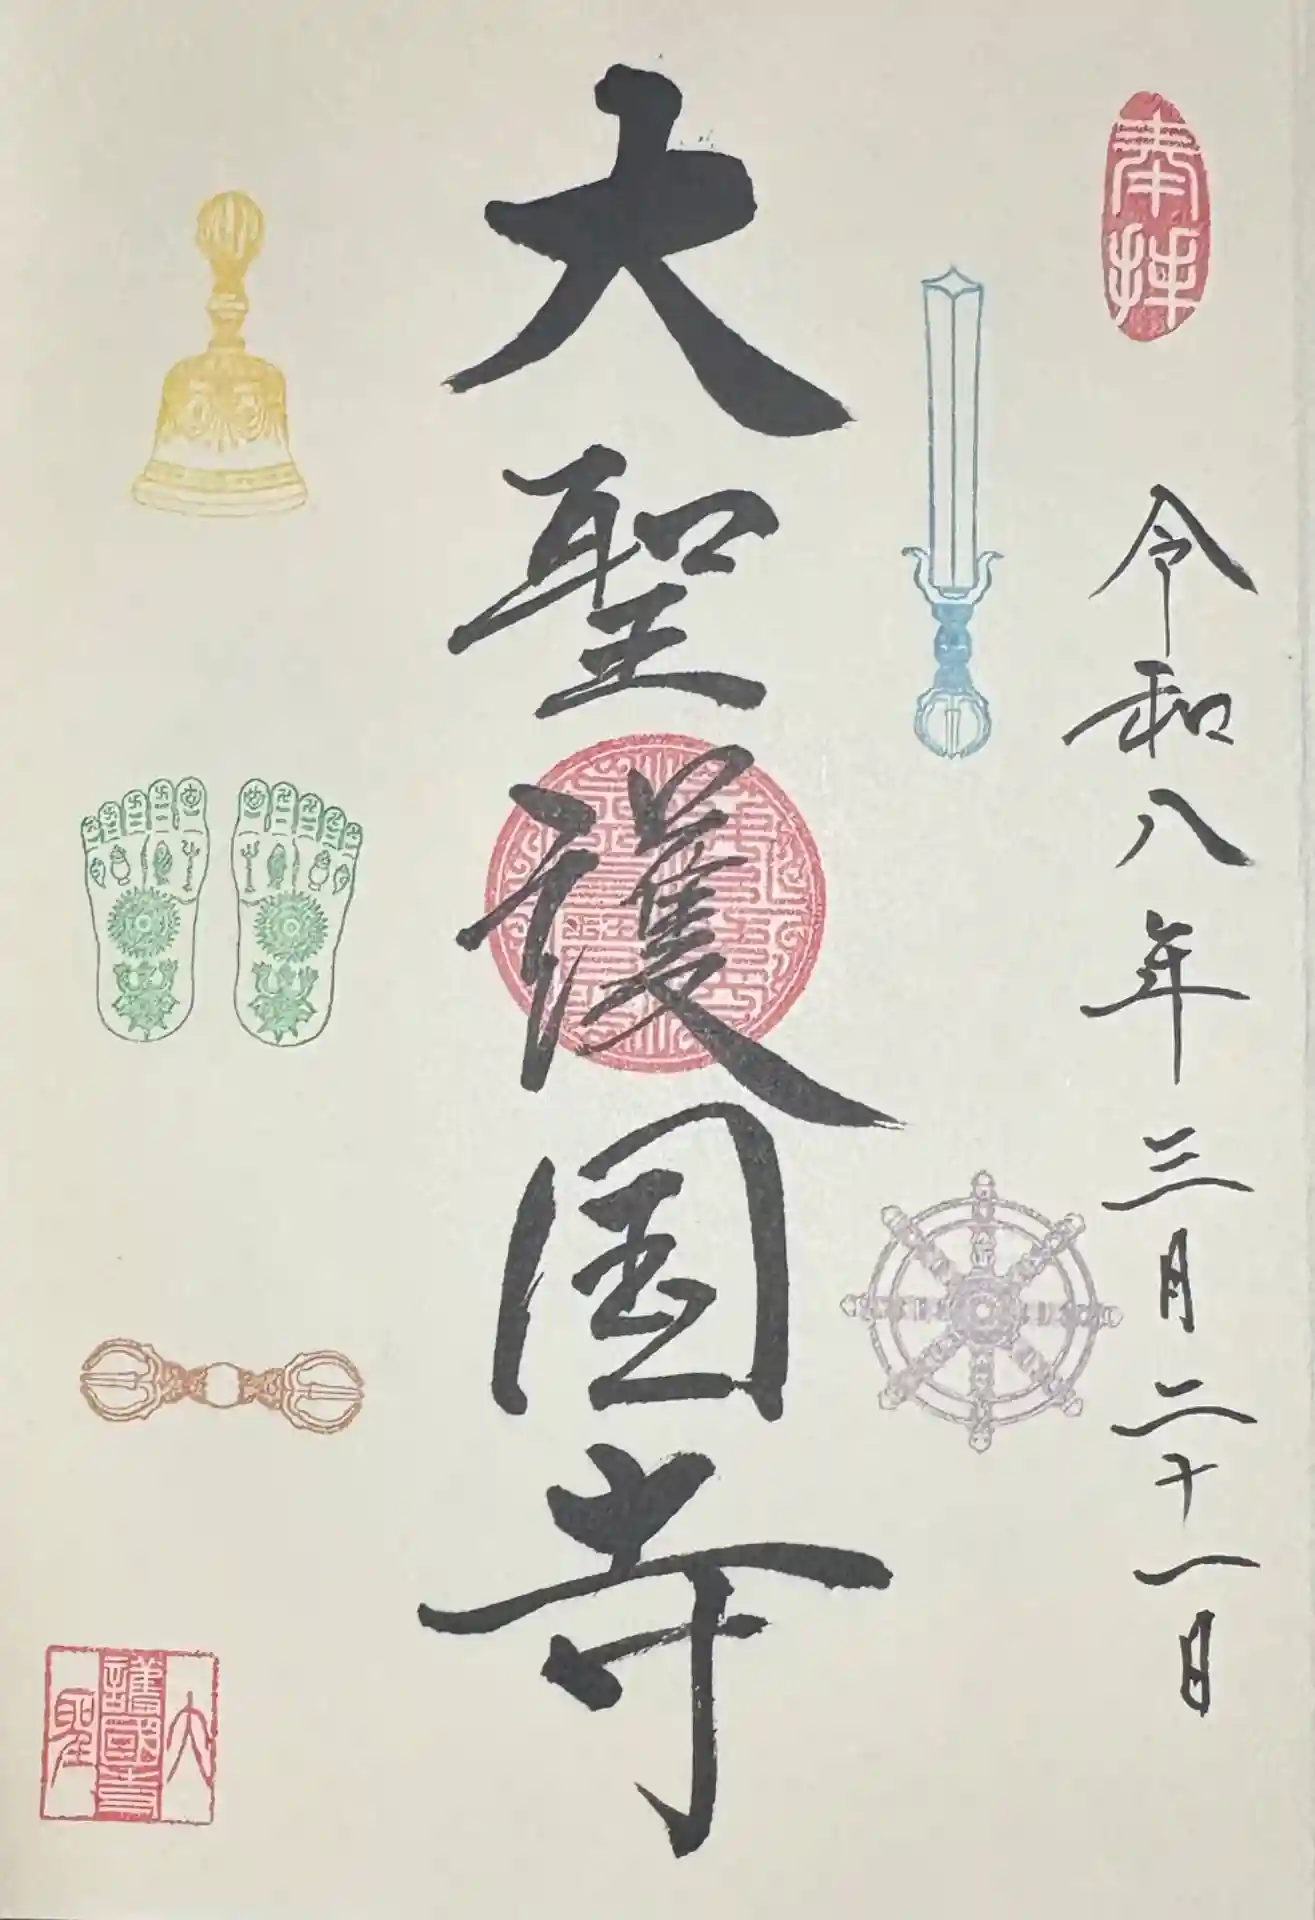 奉拝
令和八年三月二十一日
大聖護国寺
大聖護國寺